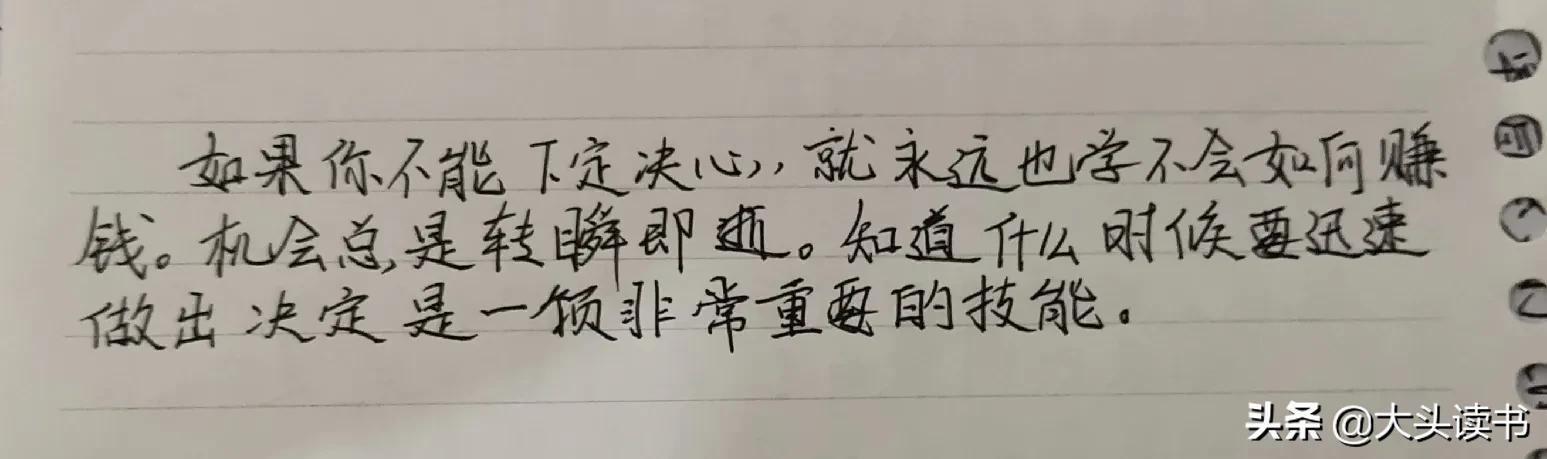 如果你不能下定决心,就永远也学不会如何赚
钱。机会总是转瞬即逝。知道什么时候要迅速
做出决定是一项非常重要的技能。
头条@大头读书